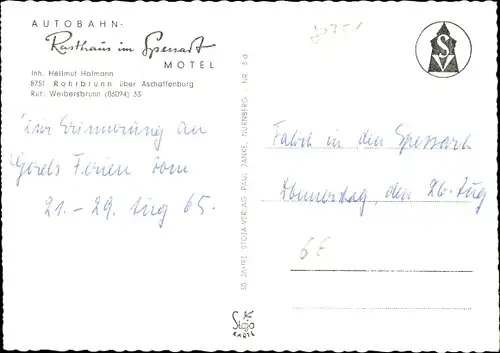 AUTOBAHN-
Rasthaus im Spessart
MOTEL
Inh. Hellmut Hofmann
8751 Rohrbrunn über Aschaffenburg
Ruf: Weibersbrunn (06094) 33
Zur Erinnerung an
Ferien vom
21. - 29. Aug 65.
30 JAHRE STOJA-VERLAG PAUL JANKE, NÜRNBERG - NR.
Fahrt in den Spessart
Donnerstag, den 26. Aug
6E
Stoja
KARTE
S
V